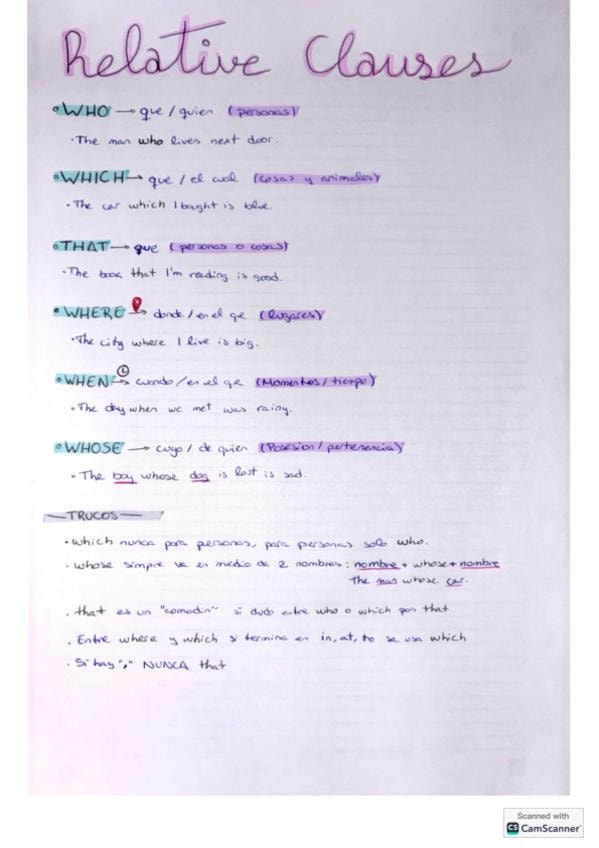 Relative Clauses
WHO → que / quien (personas)
· The man who lives next door.
WHICH → que / el cual (cosas y animales)
· The car which I bought is blue.
THAT → que (personas o cosas)
· The book that I'm reading is good.
WHERE → donde / en el qe (lugares)
· The city where I live is big.
WHEN → cuando / en el qe (Momentos / tiempo)
· The day when we met was rainy.
WHOSE → cuyo / de quien (Posesion / pertenencia)
· The boy whose dog is lost is sad.
— TRUCOS —
· which nunca para personas, para personas solo who.
· whose simpre va en medio de 2 nombres: nombre + whose + nombre
The man whose car.
· that es un "comodin" si dudo entre who o which pon that
· Entre where y which si termina en in, at, to se usa which
· Si hay "," NUNCA that
Scanned with
CS CamScanner